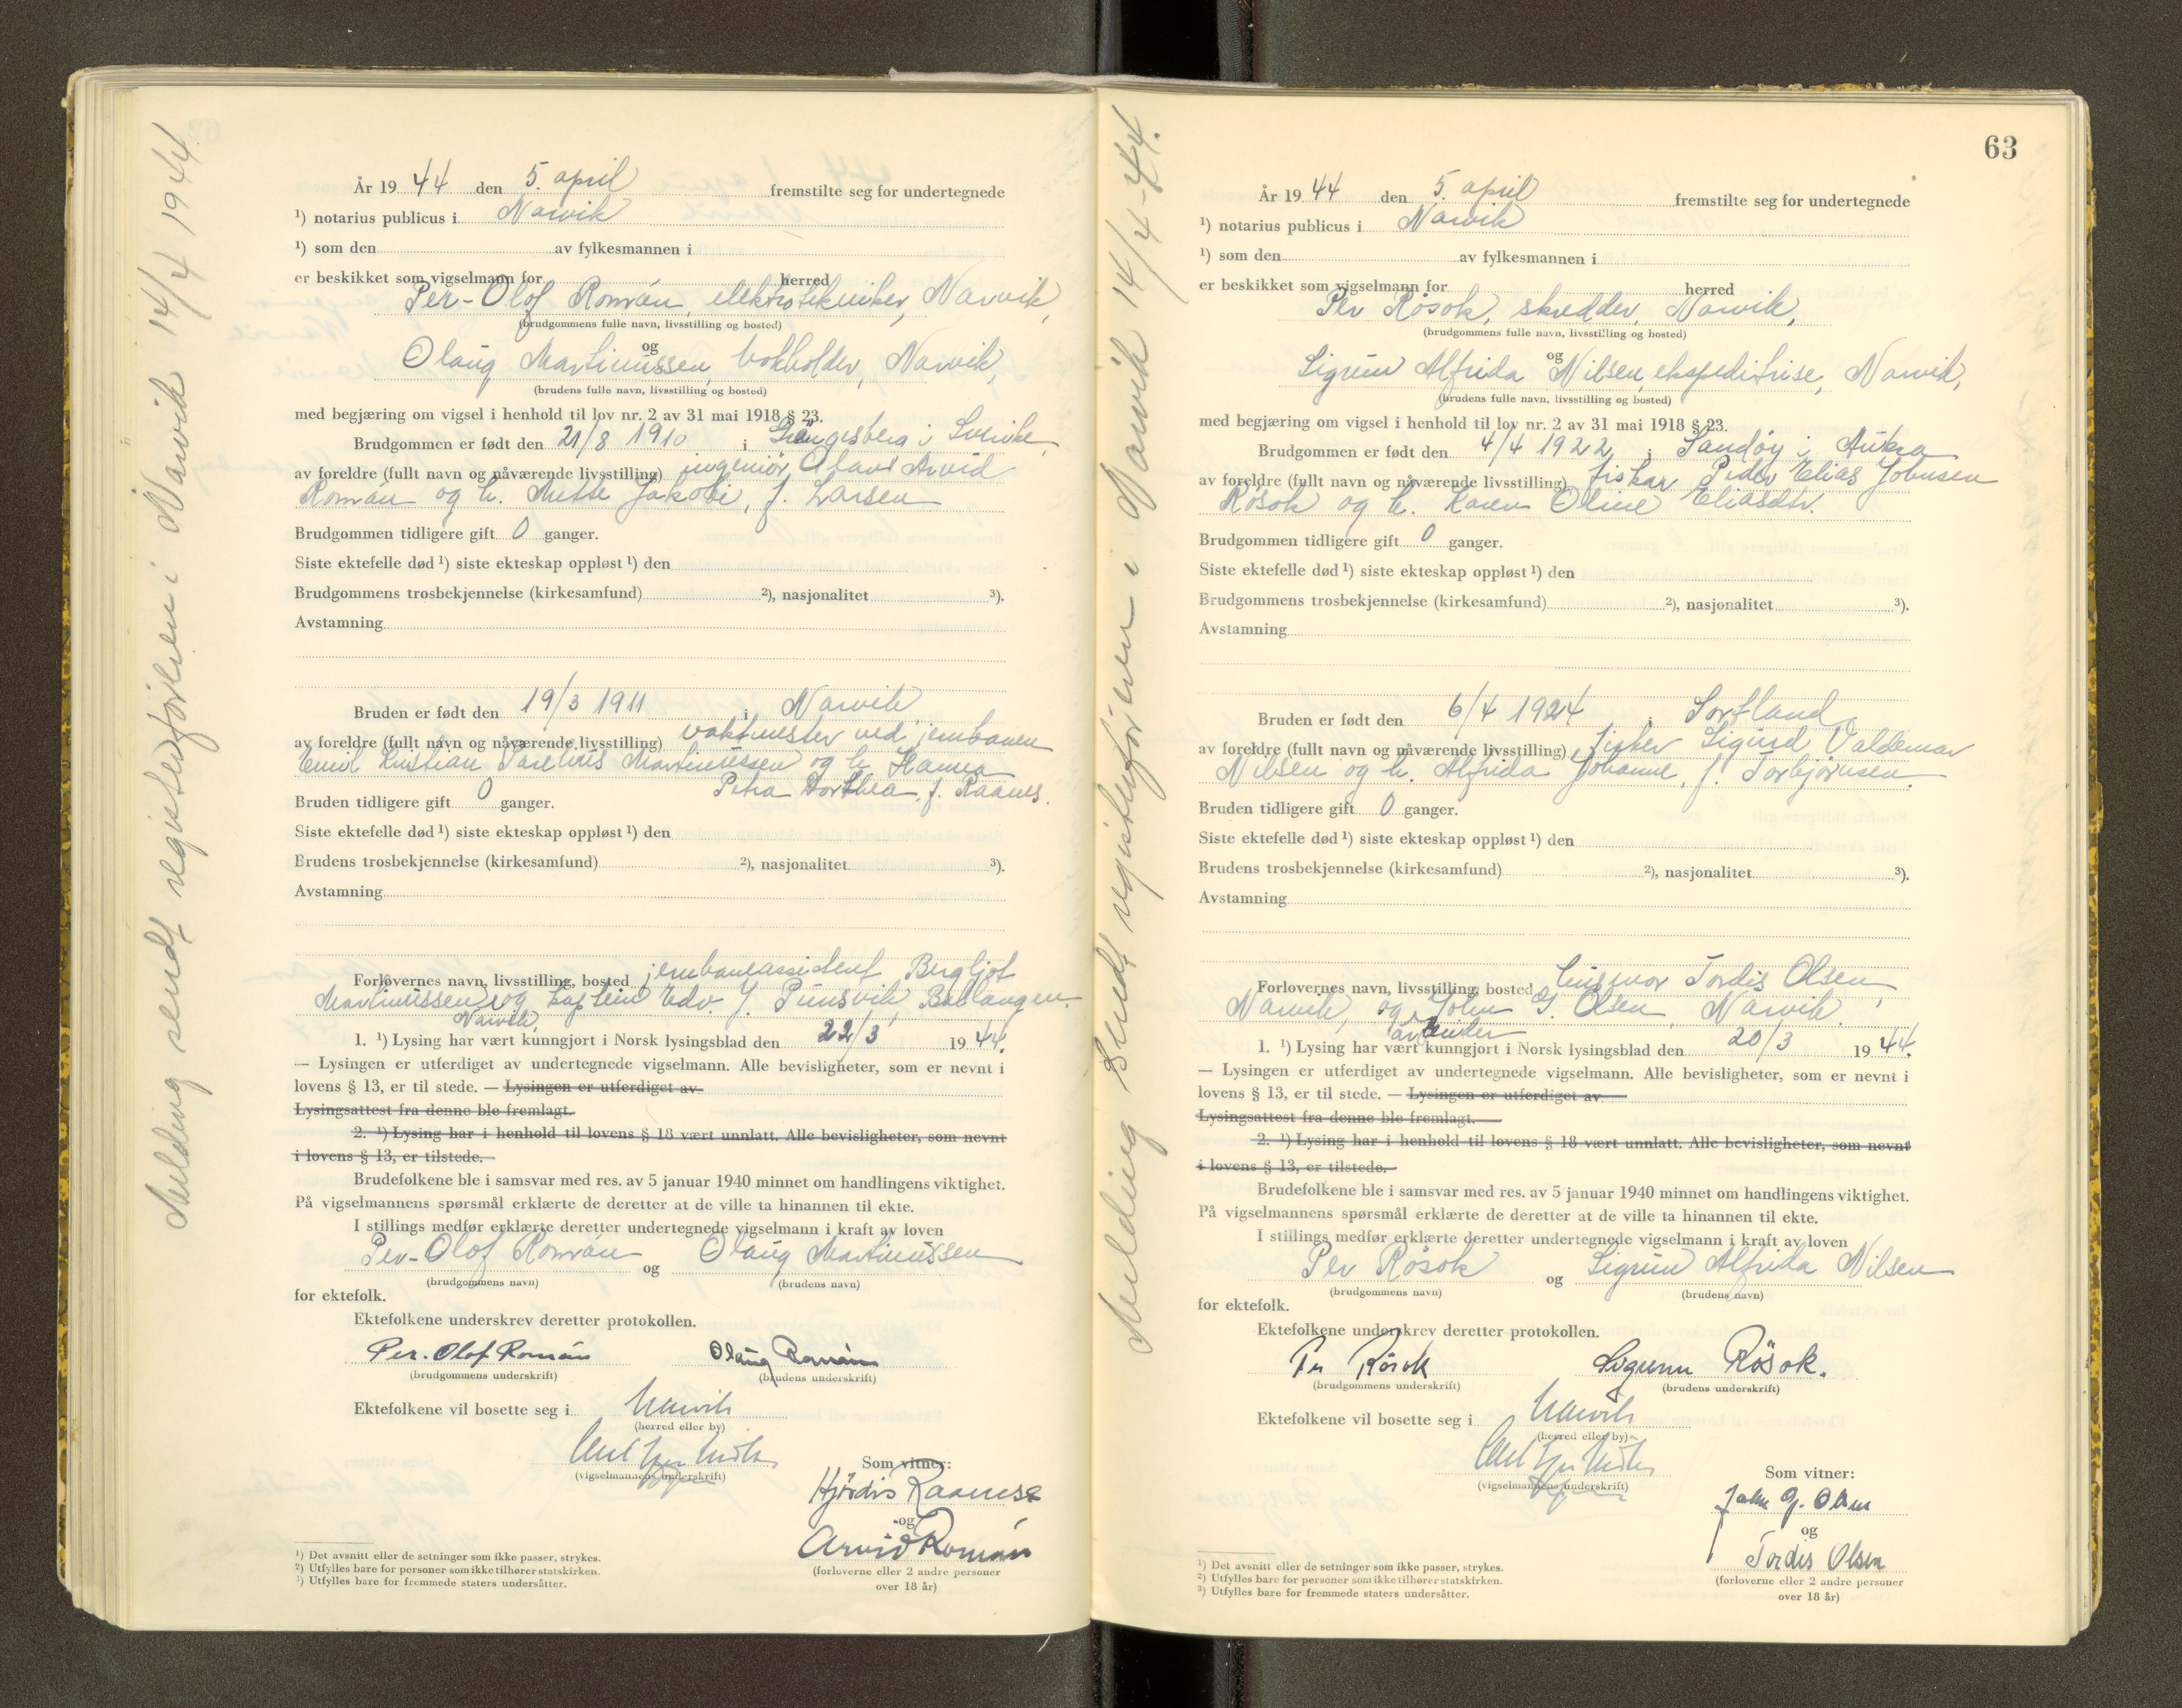 Melding sendt registerføreren i Narvik 14/4 1944.
År 1944 den 5. april fremstilte seg for undertegnede
¹) notarius publicus i Narvik
¹) som den av fylkesmannen i
er beskikket som vigselmann for herred
Per-Olof Román, elektrotekniker, Narvik,
(brudgommens fulle navn, livsstilling og bosted)
og
Olaug Martinussen, bokholder, Narvik,
(brudens fulle navn, livsstilling og bosted)
med begjæring om vigsel i henhold til lov nr. 2 av 31 mai 1918 § 23.
Brudgommen er født den 21/8 1910 i Grängesberg i Sverike,
av foreldre (fullt navn og nåværende livsstilling) ingeniør Olaus Arvid
Román og h. Mette Jakobi, f. Larsen
Brudgommen tidligere gift 0 ganger.
Siste ektefelle død ¹) siste ekteskap oppløst ¹) den
Brudgommens trosbekjennelse (kirkesamfund) ²), nasjonalitet ³).
Avstamning
Bruden er født den 19/3 1911 i Narvik
av foreldre (fullt navn og nåværende livsstilling) vaktmester ved jernbanen
Emil Kristian Martinussen og h. Hanna
Petra Dorthea, f. Raanes.
Bruden tidligere gift 0 ganger.
Siste ektefelle død ¹) siste ekteskap oppløst ¹) den
Brudens trosbekjennelse (kirkesamfund) ²), nasjonalitet ³).
Avstamning
Forlovernes navn, livsstilling, bosted jernbaneassistent Bergljot
Martinussen, og kaptein Edv. J. Punsvik, Ballangen.
Narvik,
1. ¹) Lysing har vært kunngjort i Norsk lysingsblad den 22/3 1944.
— Lysingen er utferdiget av undertegnede vigselmann. Alle bevisligheter, som er nevnt i
lovens § 13, er til stede. — Lysingen er utferdiget av
Lysingsattest fra denne ble fremlagt.
2. ¹) Lysing har i henhold til lovens § 18 vært unnlatt. Alle bevisligheter, som nevnt
i lovens § 13, er tilstede.
Brudefolkene ble i samsvar med res. av 5 januar 1940 minnet om handlingens viktighet.
På vigselmannens spørsmål erklærte de deretter at de ville ta hinannen til ekte.
I stillings medfør erklærte deretter undertegnede vigselmann i kraft av loven
Per-Olof Román og Olaug Martinussen
(brudgommens navn) (brudens navn)
for ektefolk.
Ektefolkene underskrev deretter protokollen.
Per-Olof Román Olaug Román
(brudgommens underskrift) (brudens underskrift)
Ektefolkene vil bosette seg i Narvik
(herred eller by)
(vigselmannens underskrift)
Som vitner:
Hjördis Raanes
og
Arvid Román
(forloverne eller 2 andre personer
over 18 år)
¹) Det avsnitt eller de setninger som ikke passer, strykes.
²) Utfylles bare for personer som ikke tilhører statskirken.
³) Utfylles bare for fremmede staters undersåtter.
63
Melding sendt registerføreren i Narvik 14/4-44.
År 1944 den 5. april fremstilte seg for undertegnede
¹) notarius publicus i Narvik
¹) som den av fylkesmannen i
er beskikket som vigselmann for herred
Per Røsok, skredder, Narvik,
(brudgommens fulle navn, livsstilling og bosted)
og
Sigrun Alfrida Nilsen, ekspeditrise, Narvik,
(brudens fulle navn, livsstilling og bosted)
med begjæring om vigsel i henhold til lov nr. 2 av 31 mai 1918 § 23.
Brudgommen er født den 4/4 1922 i Sandøy i Aukra
av foreldre (fullt navn og nåværende livsstilling) fiskar Peder Elias Johnsen
Røsok og h. Karen Oline Eliasdtr.
Brudgommen tidligere gift 0 ganger.
Siste ektefelle død ¹) siste ekteskap oppløst ¹) den
Brudgommens trosbekjennelse (kirkesamfund) ²), nasjonalitet ³).
Avstamning
Bruden er født den 6/4 1924 i Sortland
av foreldre (fullt navn og nåværende livsstilling) fisker Sigurd Valdemar
Nilsen og h. Alfrida Johanne, f. Torbjørnsen.
Bruden tidligere gift 0 ganger.
Siste ektefelle død ¹) siste ekteskap oppløst ¹) den
Brudens trosbekjennelse (kirkesamfund) ²), nasjonalitet ³).
Avstamning
Forlovernes navn, livsstilling, bosted husmor Tordis Olsen,
Narvik, og John G. Olsen, Narvik.
arbeider
1. ¹) Lysing har vært kunngjort i Norsk lysingsblad den 20/3 1944.
— Lysingen er utferdiget av undertegnede vigselmann. Alle bevisligheter, som er nevnt i
lovens § 13, er til stede. — Lysingen er utferdiget av
Lysingsattest fra denne ble fremlagt.
2. ¹) Lysing har i henhold til lovens § 18 vært unnlatt. Alle bevisligheter, som nevnt
i lovens § 13, er tilstede.
Brudefolkene ble i samsvar med res. av 5 januar 1940 minnet om handlingens viktighet.
På vigselmannens spørsmål erklærte de deretter at de ville ta hinannen til ekte.
I stillings medfør erklærte deretter undertegnede vigselmann i kraft av loven
Per Røsok og Sigrun Alfrida Nilsen
(brudgommens navn) (brudens navn)
for ektefolk.
Ektefolkene underskrev deretter protokollen.
Per Røsok Sigrunn Røsok.
(brudgommens underskrift) (brudens underskrift)
Ektefolkene vil bosette seg i Narvik
(herred eller by)
(vigselmannens underskrift)
Som vitner:
John G. Olsen
og
Tordis Olsen
(forloverne eller 2 andre personer
over 18 år)
¹) Det avsnitt eller de setninger som ikke passer, strykes.
²) Utfylles bare for personer som ikke tilhører statskirken.
³) Utfylles bare for fremmede staters undersåtter.